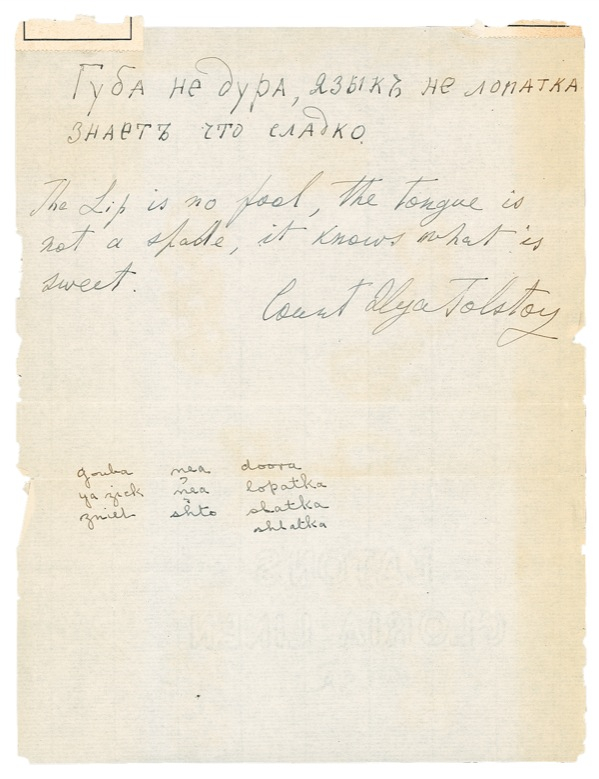 Губа не дура, языкъ не лопатка
знаетъ что сладко.
The Lip is no fool, the tongue is
not a spade, it knows what is
sweet.
Count Ilya Tolstoy
gouba nea doora
ya zick nea lopatka
zniet shto slatka
shlatka
EATON'S
GLORIA LINEN